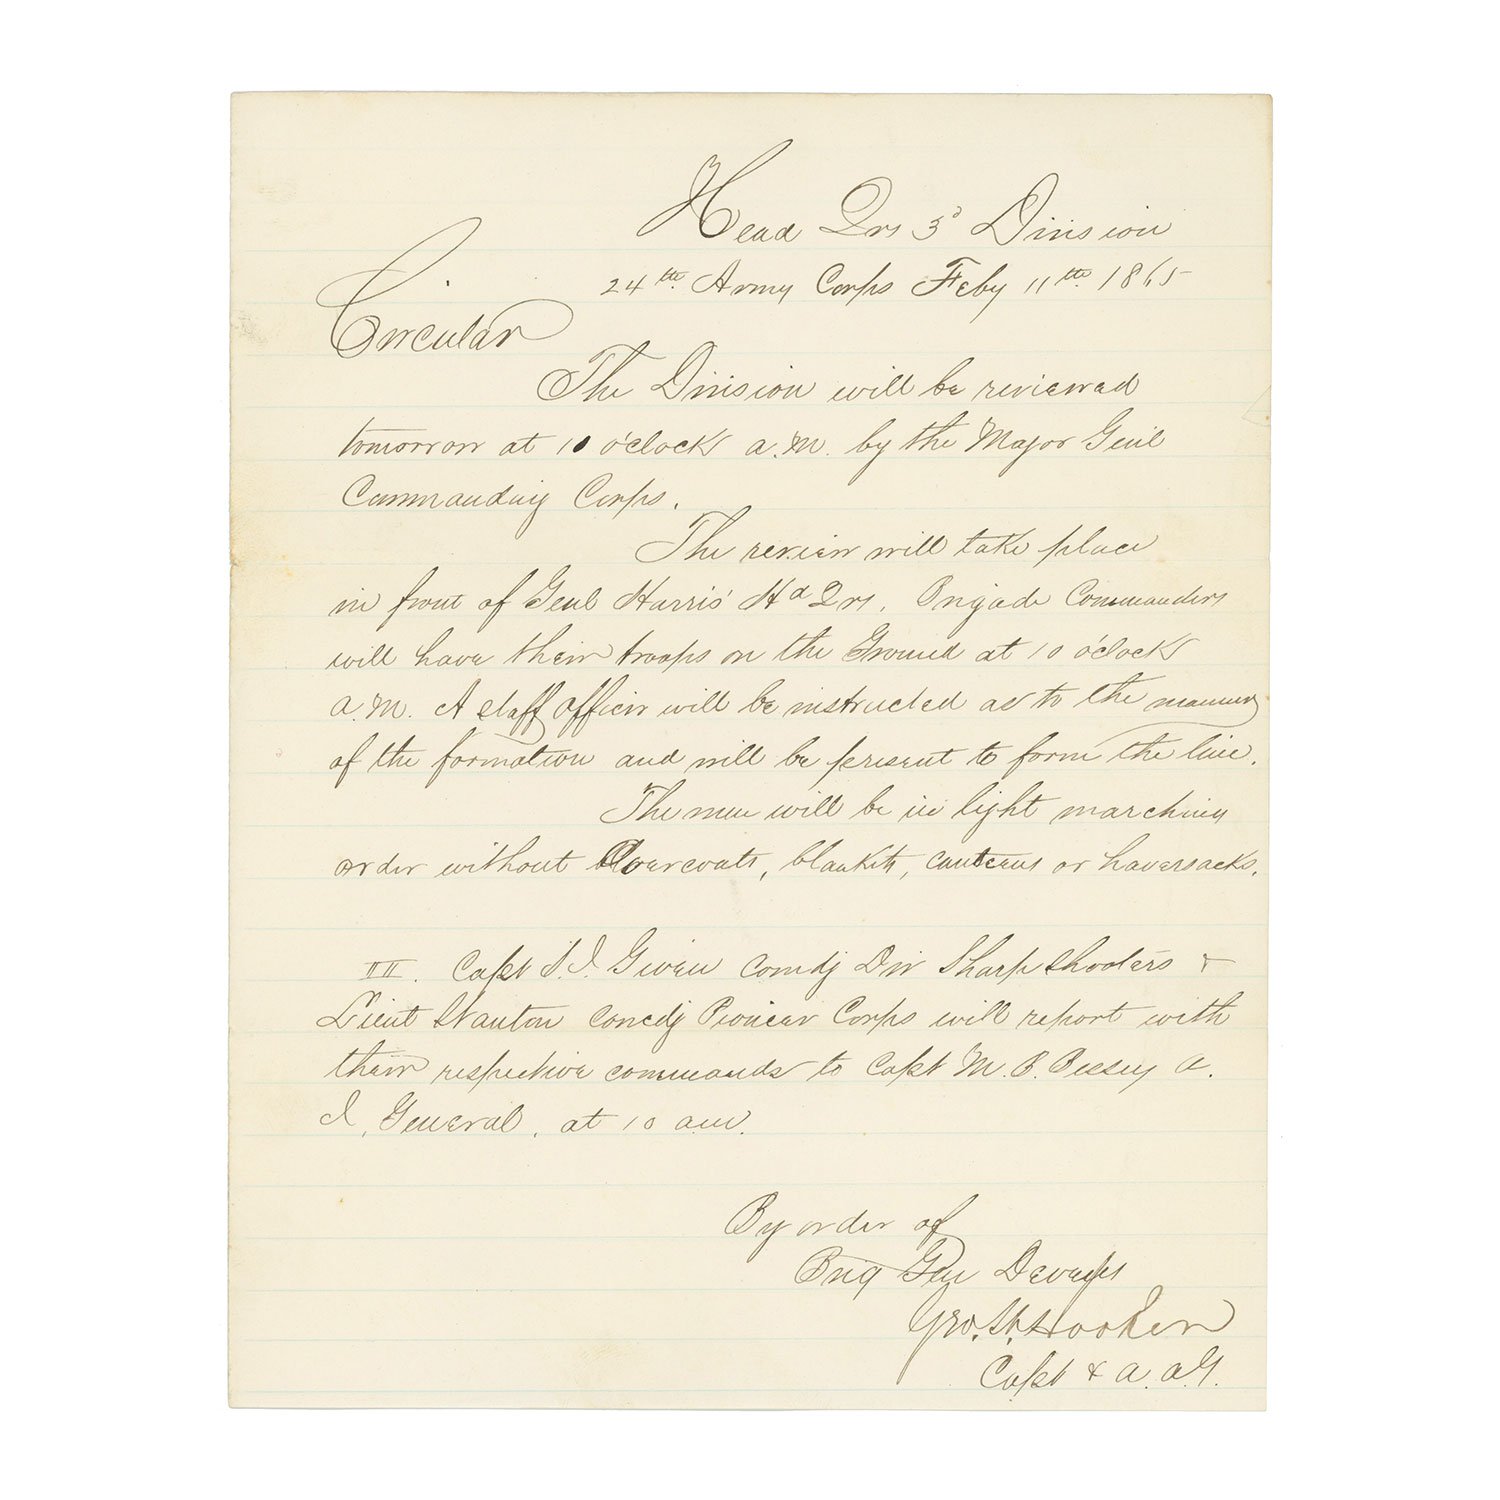 Head Qrs 3d Division
24th Army Corps Feby 11th 1865
Circular
The Division will be reviewed
tomorrow at 10 o'clock a.m. by the Major Genl
Commanding Corps.
The review will take place
in front of Genl Harris' Hd Qrs. Brigade Commanders
will have their troops on the Ground at 10 o'clock
a.m. A staff officer will be instructed as to the manner
of the formation and will be present to form the line.
The men will be in light marching
order without Overcoats, blankets, canteens or haversacks.
II. Capt Given Comdg Div Sharp Shooters &
Lieut Stanton Comdg Pioneer Corps will report with
their respective commands to Capt M. B. Bessey A.
I. General, at 10 am.
By order of
Brig Gen Devens
Geo. H. Hooker
Capt & A. A. G.